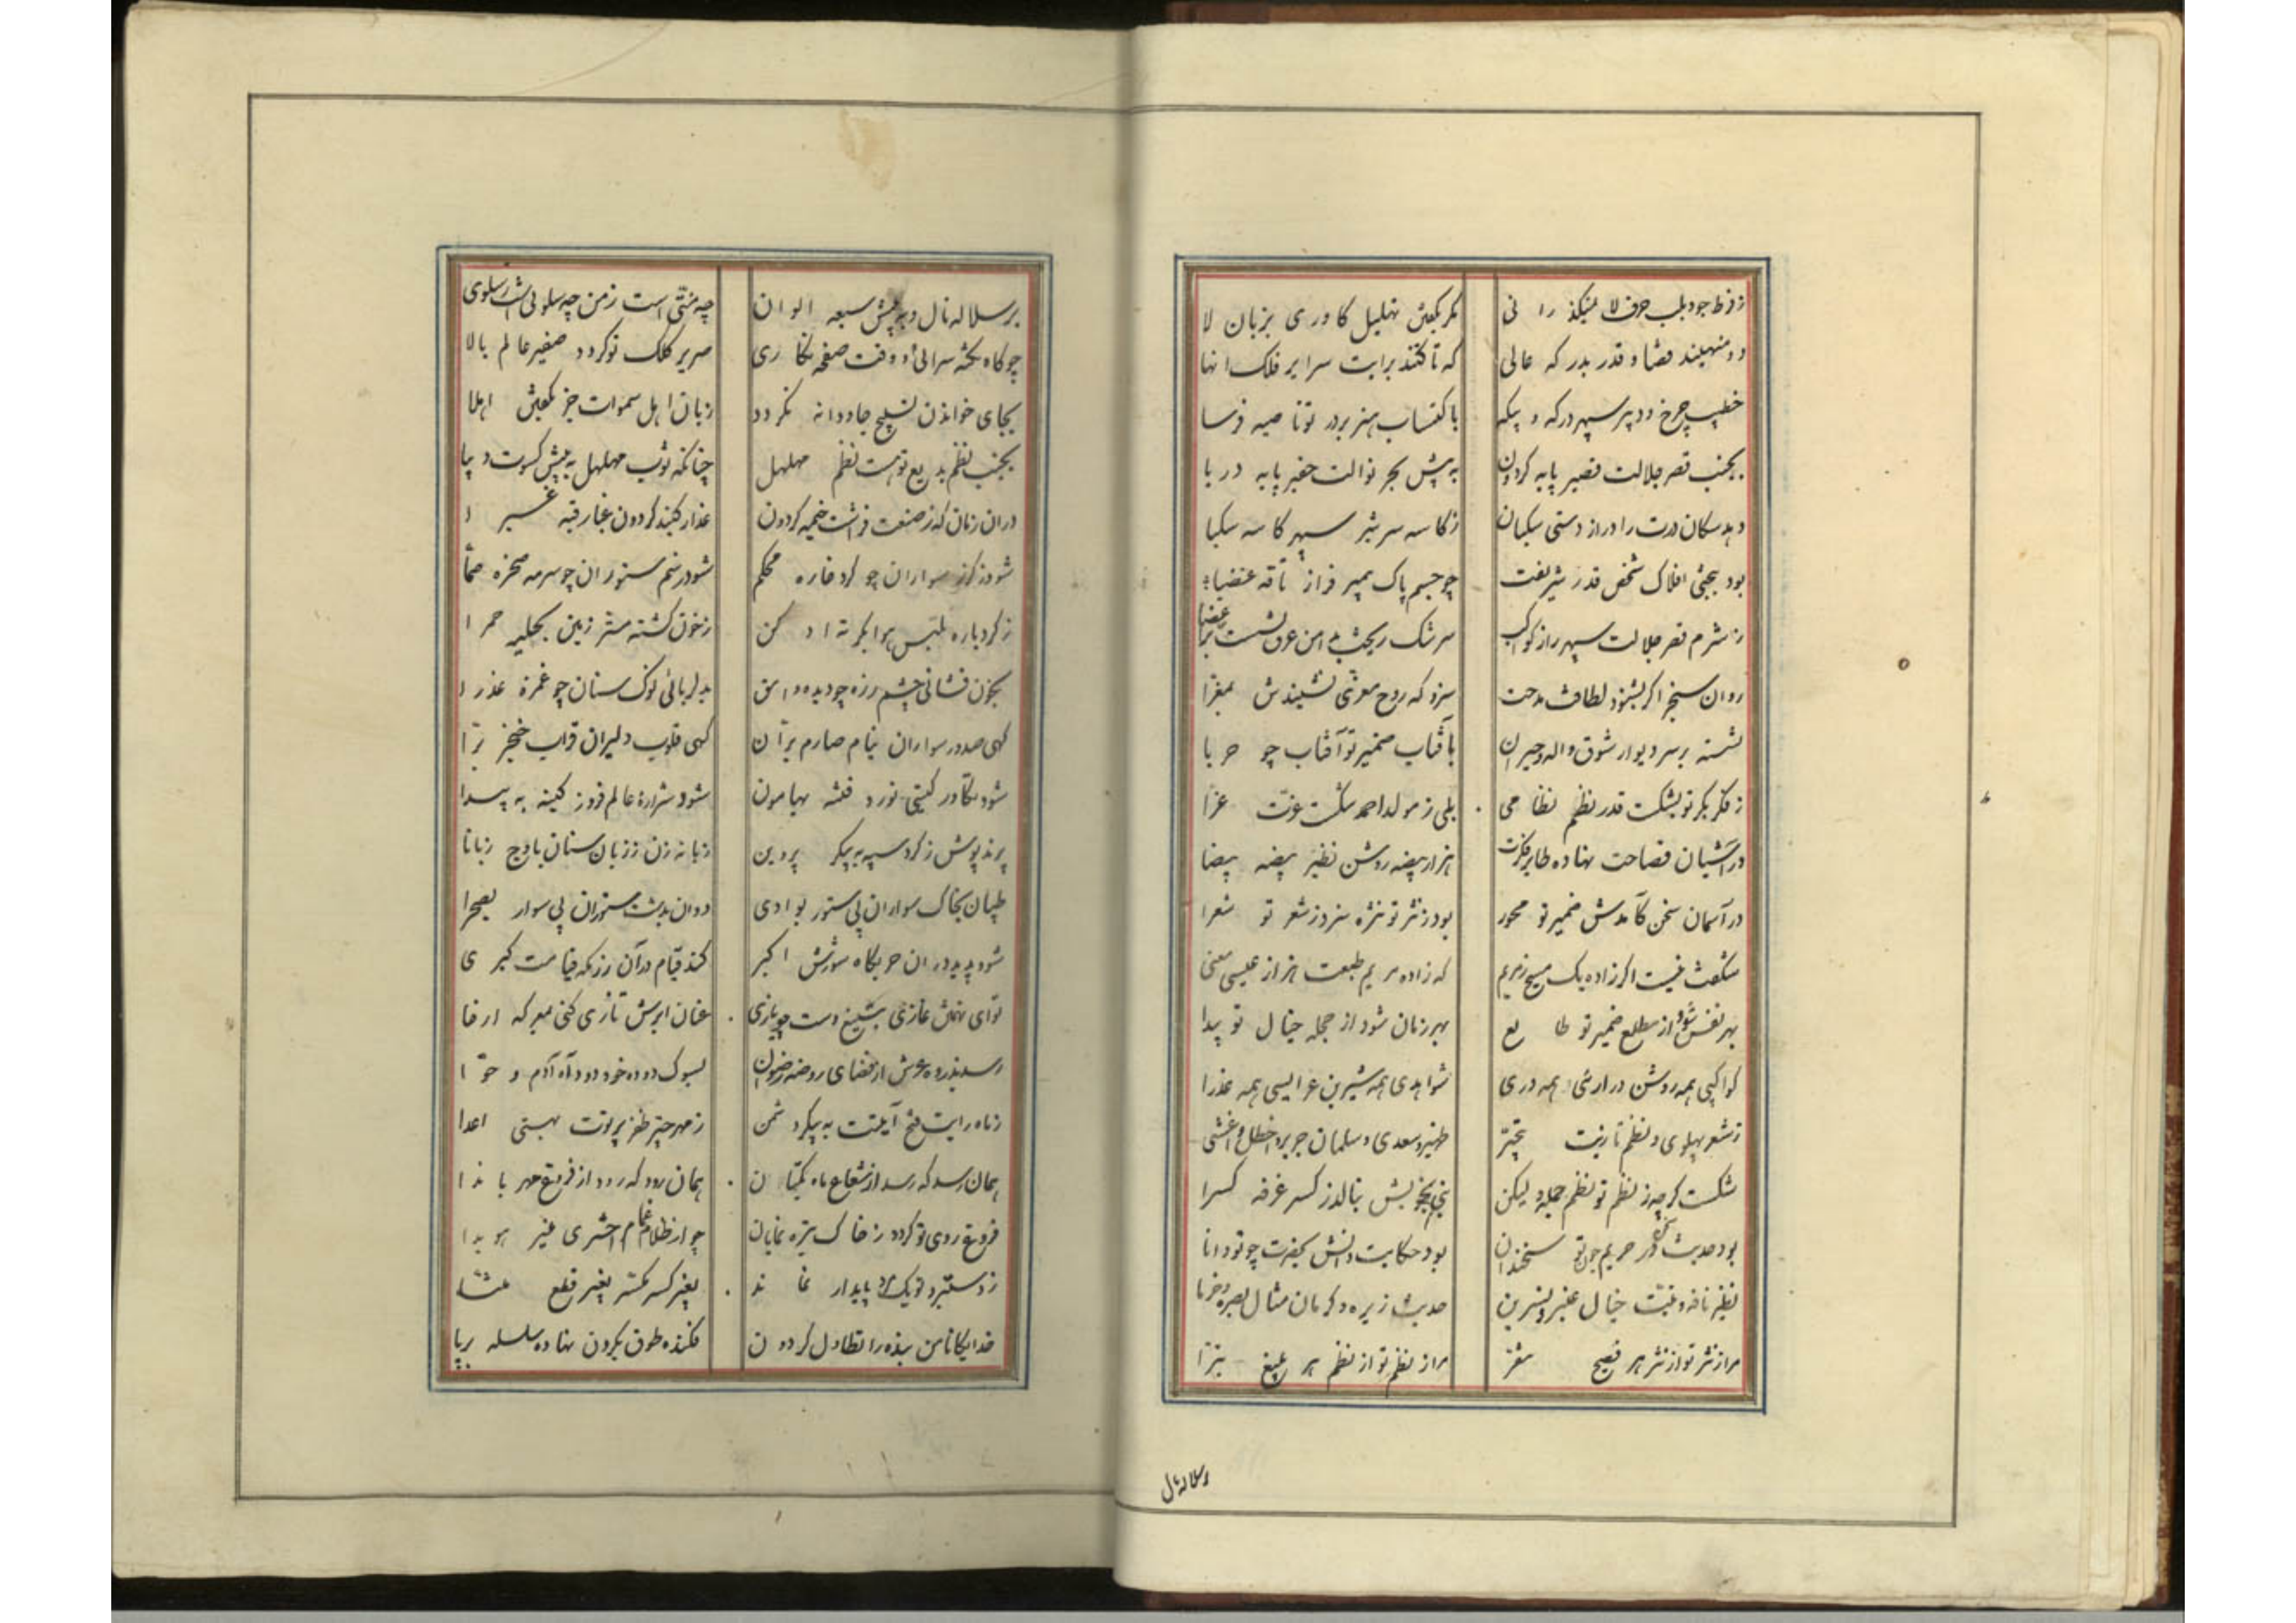 ز فرط جود بلب حرف لا نیفکند را نی مکر بکفتن تهلیل کاوری بزبان لا
دو منهیند قضا و قدر بدر که عالی که تا کنند برایت سرایر فلک انها
خطیب چرخ و دبیر سپهر درکه و بیکه باکتساب هنر بر در تو ناصیه فرسا
بجنب قصر جلالت قصیر پایه کردون به پیش بحر نوالت حقیر پایه دریا
دهد سکان درت را دراز دستی یکسان ز کاسه سر شیر سپهر کاسه سکبا
بود بجثی افلاک شخص قدر شریفت چو جسم پاک پیمبر فراز ناقه عضبا
ز شرم قصر جلالت سپهر را ز کواکب سرشک ریخت بدامن عرق نشست بر اعضا
روان سنجر اکر بشنود لطافت مدحت سزد که روح معزی نشیندش بمعزا
نشسته بر سر دیوار شوق واله و حیران بآفتاب ضمیر تو آفتاب چو حربا
ز فکر بکر تو بشکست قدر نظم نظامی بلی ز مولد احمد شکست عزت عزا
در آشیان فصاحت نهاده طایر فکرت هزار بیضه روشن نظیر بیضه بیضا
در آسمان سخن کآمدش ضمیر تو محور بود ز نثر تو نثره سزد ز شعر تو شعرا
شکفت نیست اکر زاده یک مسیح ز مریم که زاده مریم طبعت هزار عیسی معنی
بهر نفس شود از مطلع ضمیر تو طالع بهر زمان شود از حجله خیال تو پیدا
کواکبی همه روشن دراری همه دری شواهدی همه شیرین عرایسی همه عذرا
ز شعر پهلوی و نظم تازیت بتحیر ظهیر و سعدی و سلمان جریر و اخطل و اعشی
شکست کرچه ز نظم تو نظم جمله ولیکن نبی بخویش ننالد ز کسر غرفه کسرا
بود حدیث ذکر در حریم چون تو سخندان بود حکایت دانش بحضرت چو تو دانا
نظیر نافه و تبت خیال عنبر و نسرین حدیث زیره و کرمان مثال بصره و خرما
مرا ز نثر تو از نثر هر فصیح مفر مرا ز نظم تو از نظم هر بلیغ تبرا
برسلاله نال
برسلاله نال و به پیش سبعه الوان چه منتی است ز من چه سلوئی است ز سلوی
چو کاه نکته سرائی و وقت صفحه نکاری صریر کلک تو کردد صفیر عالم بالا
بجای خواندن تسبیح جاودانه نکردد زبان اهل سموات جز بکفتن اهلا
بجنب نظم بدیع تو هست نظم مهلهل چنانکه ثوب مهلهل به پیش کسوت دیبا
در ان زمان که ز صنعت فراشت خیمه کردون عذار کنبد کردون غبار قبه غبرا
شود ز کرز سواران چو کرد خاره محکم شود ز سم ستوران چو سرمه صخره صما
ز کرد باره ملبس هوا بکرته ادکن ز خون کشته مستر زمین بحلیه حمرا
بخون فشانی چشم زره چو دیده وامق بدلربائی نوک سنان چو غمزه عذرا
کهی صدور سواران نیام صارم بران کهی قلوب دلیران قراب خنجر برا
شود تکاور کیتی نورد فتنه بهامون شود شراره عالم فروز کینه به پیدا
پرند پوش ز کرد سپه به پیکر پروین زبانه زن ز زبان سنان باوج زبانا
طپان بخاک سواران بی ستور بوادی دوان بدشت ستوران بی سوار بصحرا
شود پدید در ان حربکاه شورش اکبر کند قیام در آن رزمکه قیامت کبری
تو ای تهمتن غازی بتیغ دست چو یازی عنان ابرش تازی کنی بمعرکه ارخا
رسد بذروه عرش از فضای روضه رضوان بسوک دوده خود دود آه آدم و حوا
ز ماه رایت فتح آیتت به پیکر دشمن ز مهر چتر ظفر پرتوت بهستی اعدا
همان رسد که رسد از شعاع ماه بکتان همان رود که رود از فروغ مهر بانذا
فروغ روی تو کردد ز خاک تیره نمایان چو از ظلام غمام اختری منیر هویدا
ز دستبرد تو یک پایدار نماند بغیر کسر مکسر بغیر قلع مثنا
خدایکانا من بنده را تطاول کردون فکنده طوق بکردن نهاده سلسله بر پا